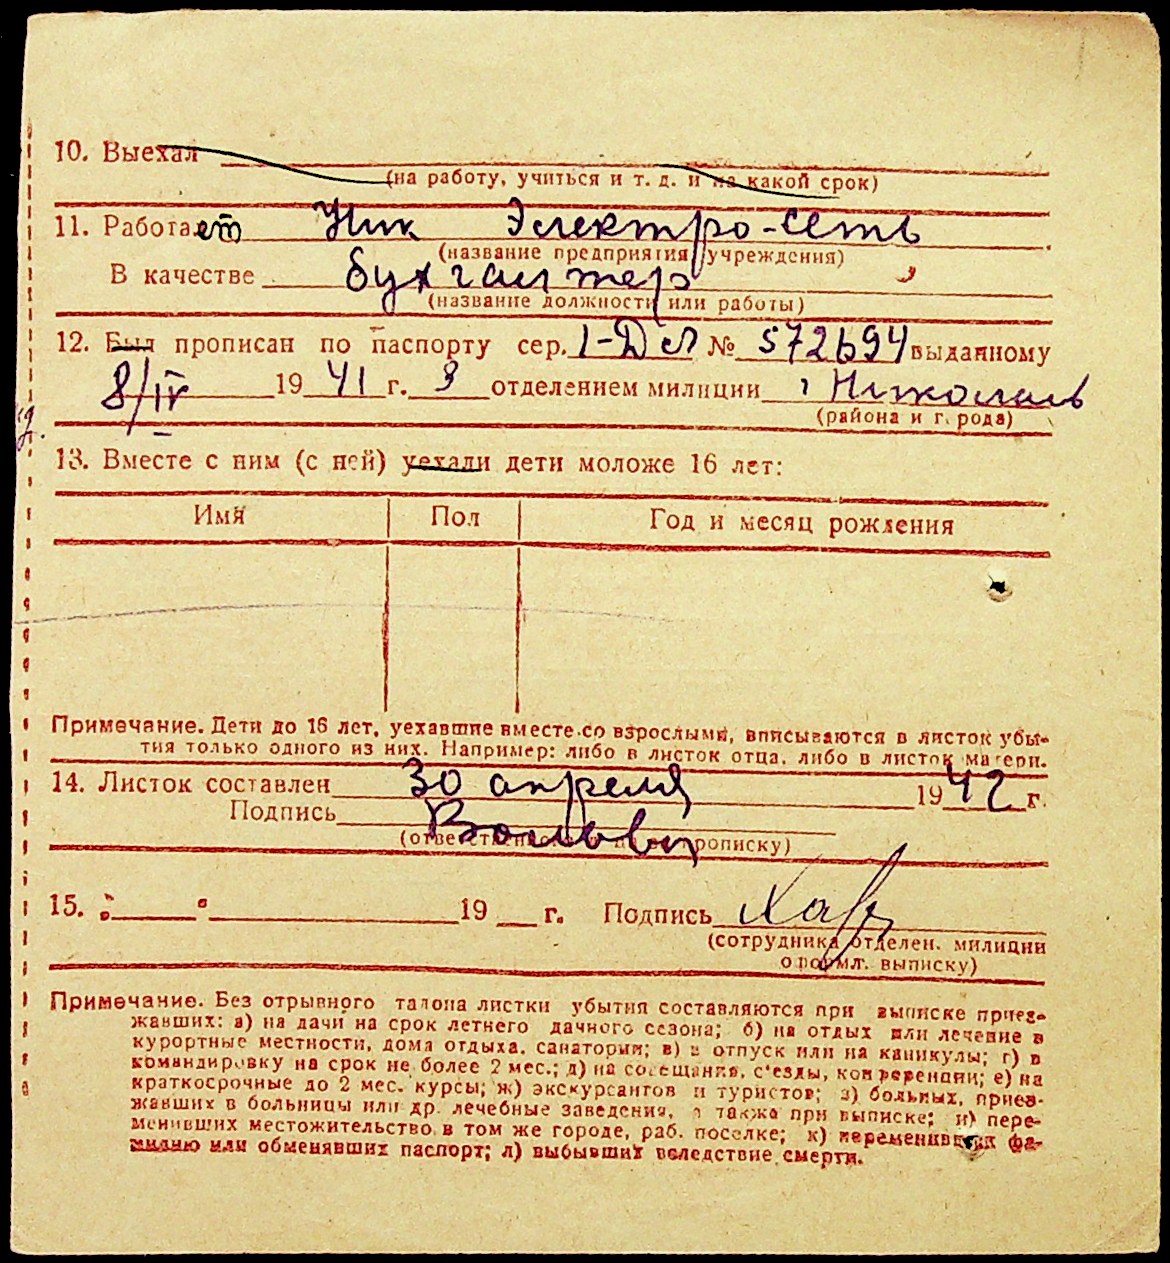 10. Выехал
(на работу, учиться и т. д. и на какой срок)
11. Работает Ник Электро-сеть
(название предприятия учреждения)
В качестве бухгалтер
(название должности или работы)
12. Был прописан по паспорту сер. № 572694 выданному
8/IV 1941 г. 3 отделением милиции г Николаев
(района и города)
13. Вместе с ним (с ней) уехали дети моложе 16 лет:
Имя Пол Год и месяц рождения
Примечание. Дети до 16 лет, уехавшие вместе со взрослыми, вписываются в листок убы-
тия только одного из них. Например: либо в листок отца, либо в листок матери.
14. Листок составлен 30 апреля 1942 г.
Подпись
(ответственного прописку)
15. " " 19 г. Подпись
(сотрудника отделен. милиции
оформл. выписку)
Примечание. Без отрывного талона листки убытия составляются при выписке приез-
жавших: а) на дачи на срок летнего дачного сезона; б) на отдых или лечение в
курортные местности, дома отдыха, санатории; в) в отпуск или на каникулы; г) в
командировку на срок не более 2 мес.; д) на совещания, с'езды, конференции; е) на
краткосрочные до 2 мес. курсы; ж) экскурсантов и туристов; з) больных, приез-
жавших в больницы или др. лечебные заведения, а также при выписке; и) пере-
менивших местожительство в том же городе, раб. поселке; к) переменивших фа-
милию или обменявших паспорт; л) выбывших вследствие смерти.